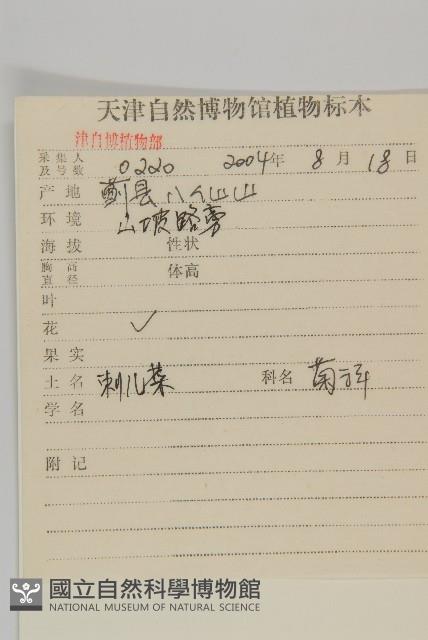 天津自然博物馆植物标本
津自博植物部
采集人及号数 0220 2004年 8月 18日
产地 蓟县八仙山
环境 山坡路旁
海拔 性状
胸高直径 体高
叶
花 ✓
果实
土名 刺儿菜 科名 菊科
学名
附记
國立自然科學博物館
NATIONAL MUSEUM OF NATURAL SCIENCE